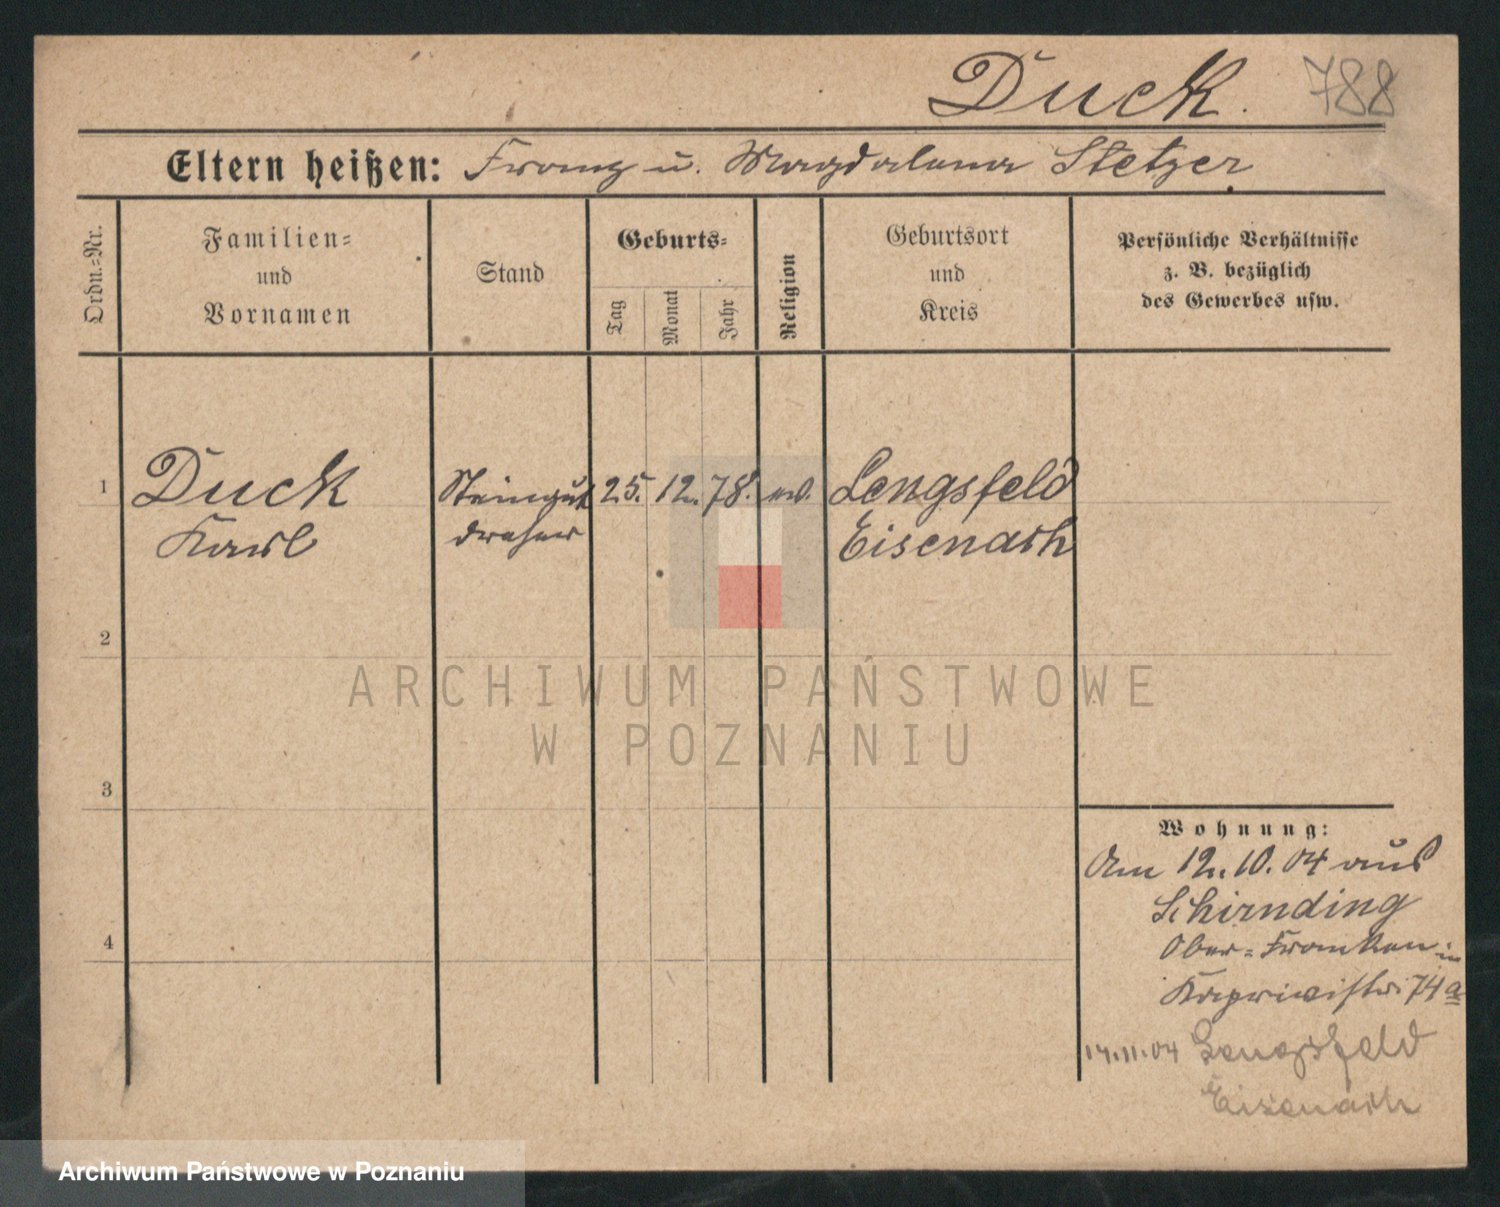 Duck. 788
Eltern heißen: Franz u. Magdalena Stetzer
Ordn.=Nr.
Familien=
und
Vornamen
Stand
Geburts=
Tag
Monat
Jahr
Religion
Geburtsort
und
Kreis
Persönliche Verhältnisse
z. B. bezüglich
des Gewerbes usw.
1 Duck Steingut 25. 12. 78. ev. Lengsfeld
Karl dreher Eisenach
2
3
4
Wohnung:
Am 12.10.04 aus
Schirnding
Ober=Franken in
74a
14.11.04 Lengsfeld
Eisenach
ARCHIWUM PAŃSTWOWE
W POZNANIU
Archiwum Państwowe w Poznaniu